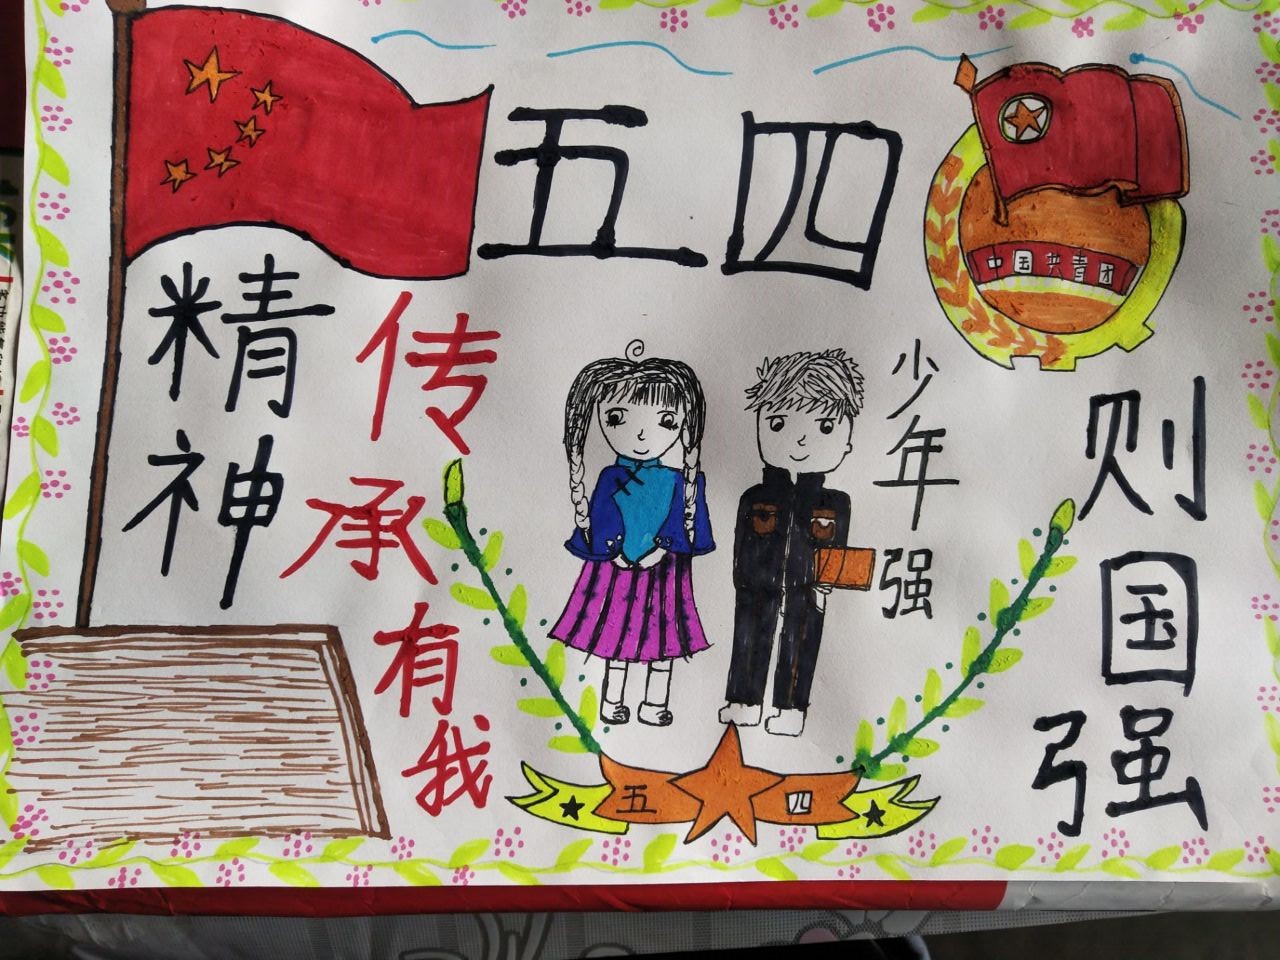 五四
精神
传承有我
中国共青团
少年强
则国强
五四